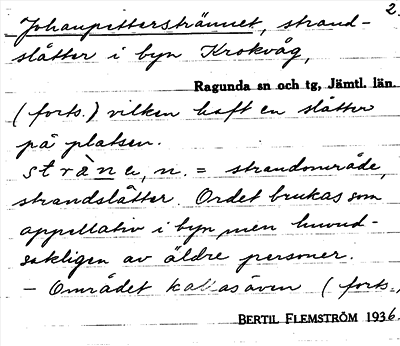 2.
Johanpettersträunet, strand-
slåtter i byn Krokvåg,
Ragunda sn och tg, Jämtl. län.
(forts.) vilken haft en slåtter
på platsen.
sträne, n. = strandområde,
strandslåtter. Ordet brukas som
appellativ i byn, men huvud-
sakligen av äldre personer.
- Området kallas även (forts.,
BERTIL FLEMSTRÖM 1936.